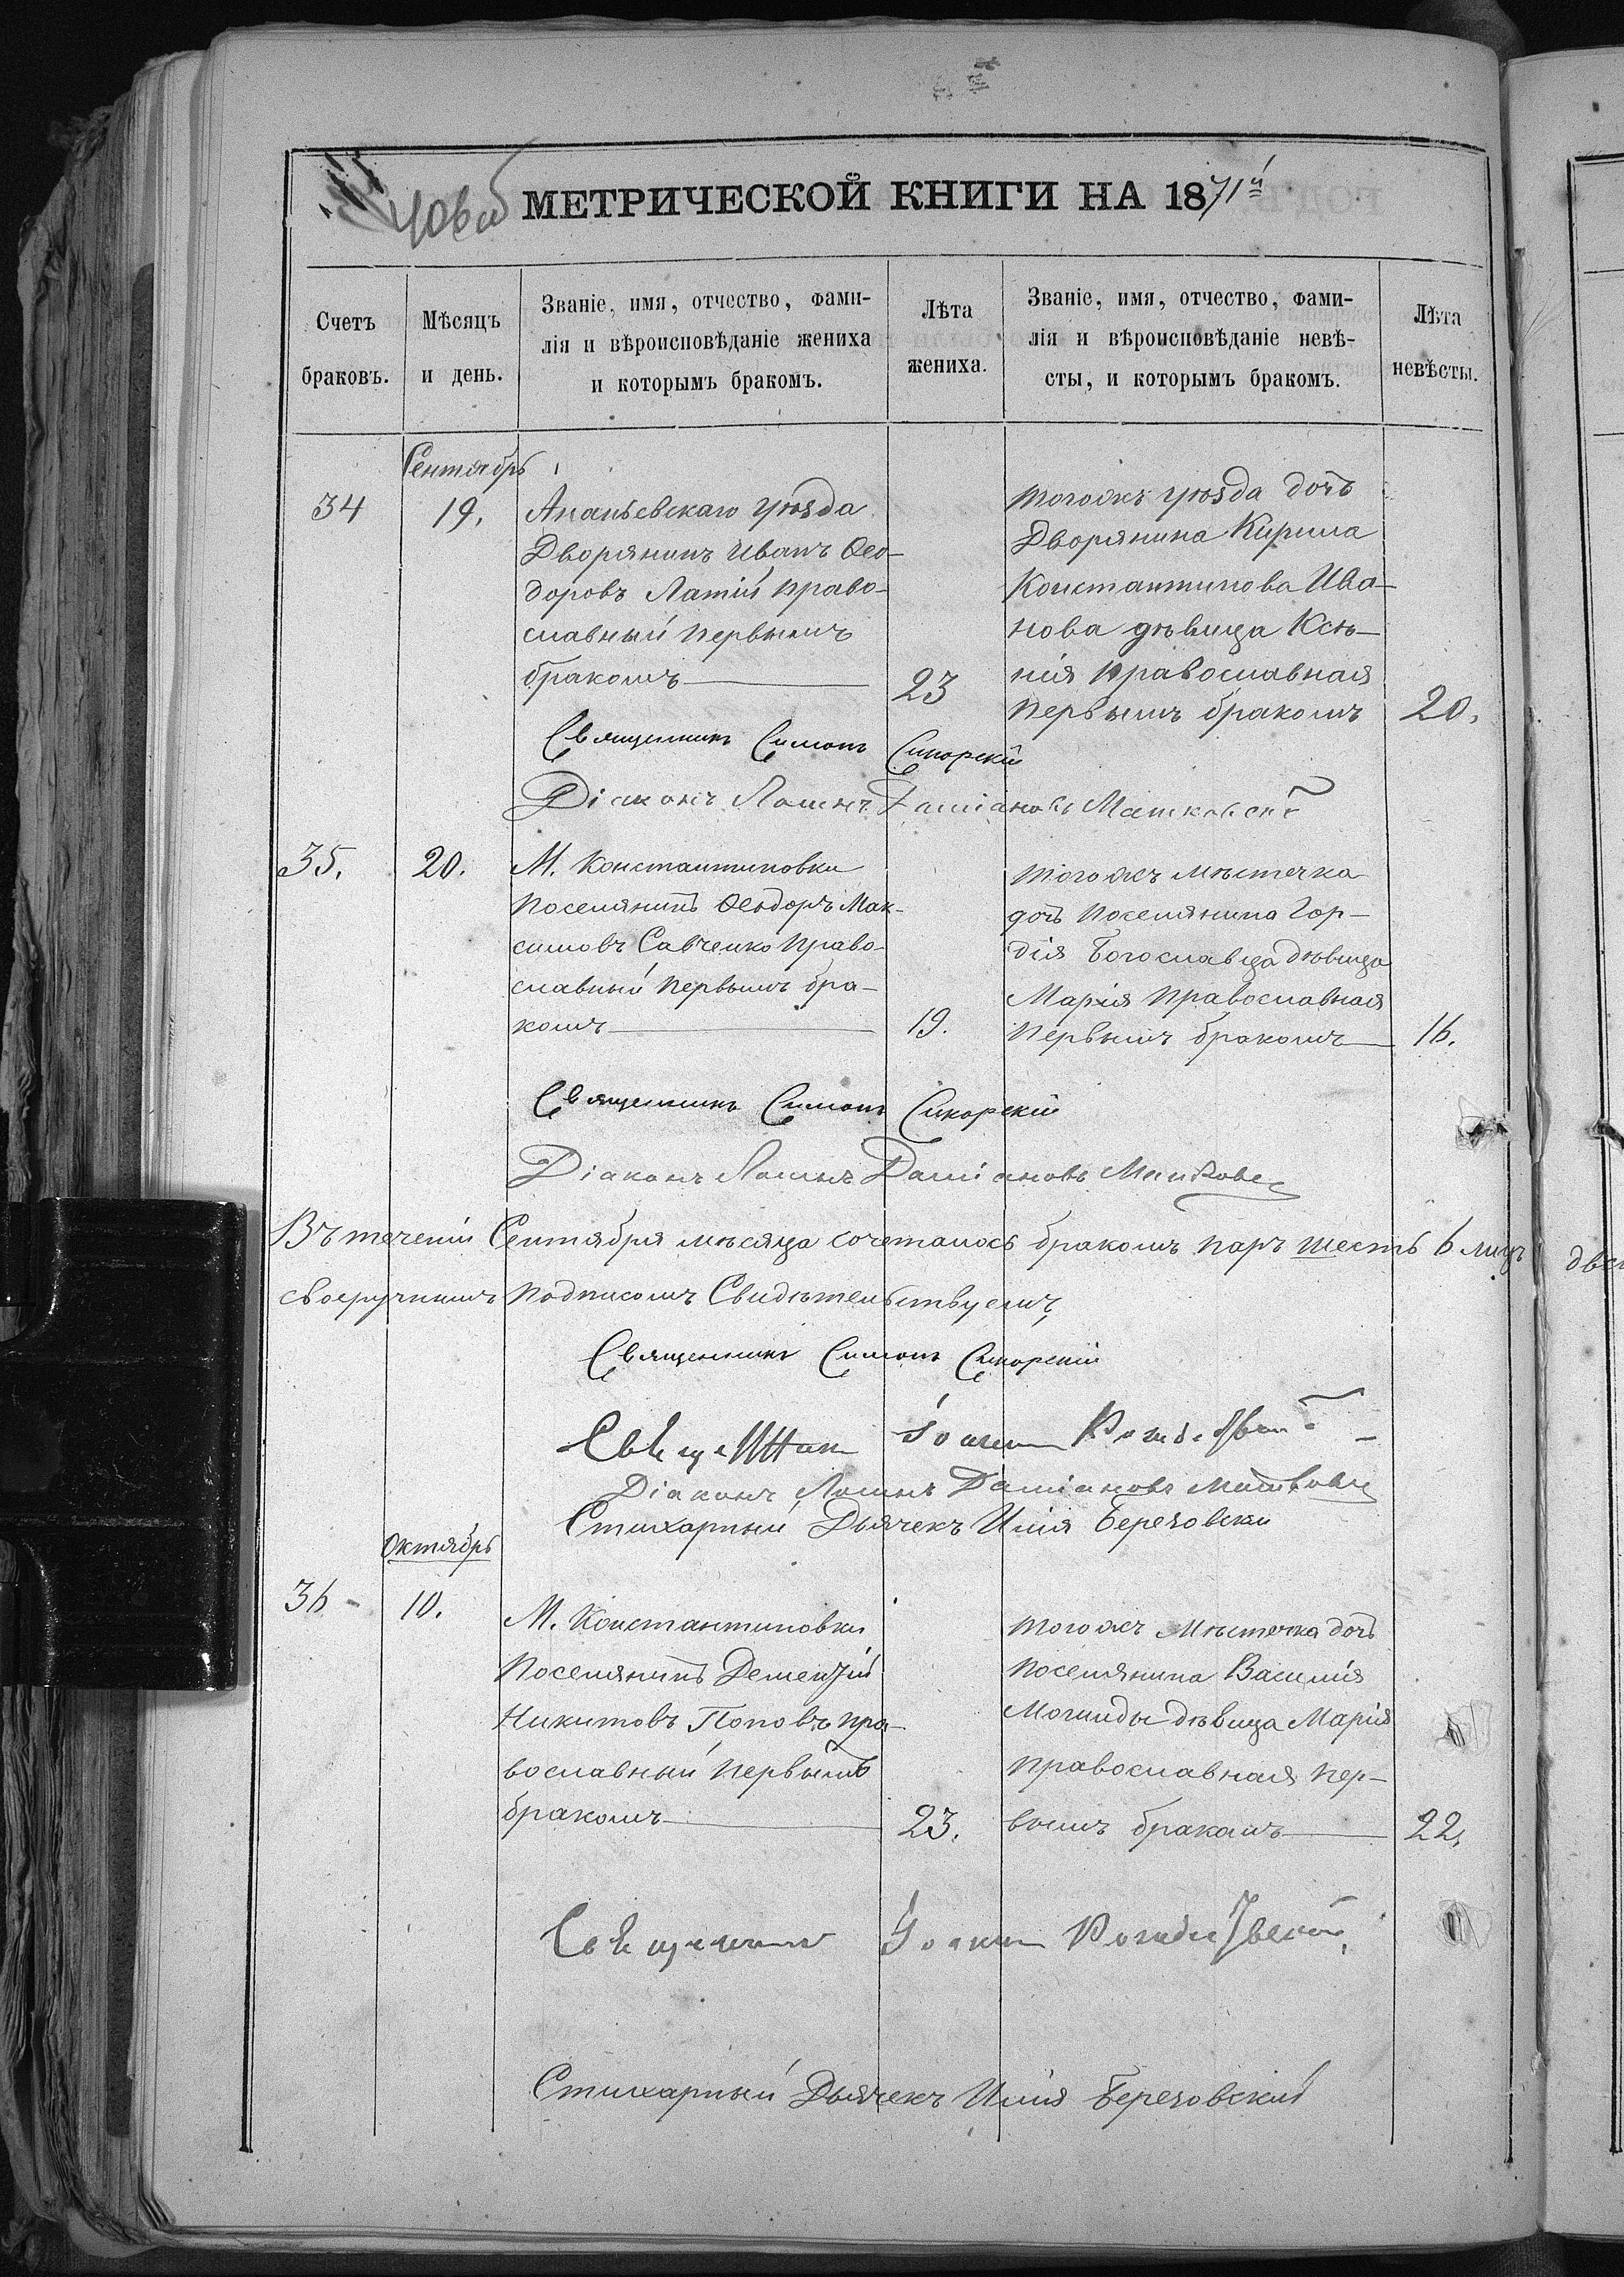 40 об
МЕТРИЧЕСКОЙ КНИГИ НА 1871й
Счетъ браковъ.
Мѣсяцъ и день.
Званіе, имя, отчество, фами-
лія и вѣроисповѣданіе жениха
и которымъ бракомъ.
Лѣта жениха.
Званіе, имя, отчество, фами-
лія и вѣроисповѣданіе невѣ-
сты, и которымъ бракомъ.
Лѣта невѣсты.
Сентябрь
34
19.
Ананьевскаго уѣзда
Дворянинъ Иванъ Ѳео-
доровъ Латій право-
славный первымъ
бракомъ
23
тогожъ уѣзда дочь
Дворянина Кирила
Константинова Ива-
нова дѣвица Ксе-
нія православная
первымъ бракомъ
20.
Священникъ Симонъ Сикорскій
Діаконъ Логинъ Даміановъ
35.
20.
М. Константиновки
Поселянинъ Ѳеодоръ Мак-
симовъ Савченко право-
славный первымъ бра-
комъ
19.
тогожъ мѣстечка
дочь поселянина Гор-
дія Богославца дѣвица
Марія православная
первымъ бракомъ
16.
Священникъ Симонъ Сикорскій
Діаконъ Логинъ Даміановъ
Въ теченіи Сентября мѣсяца сочеталось бракомъ паръ шесть 6 лицъ
своеручнымъ подписомъ Свидѣтельствуемъ,
Священникъ Симонъ Сикорскій
Священник Іоанн
Діаконъ Логинъ Даміановъ
Стихарный Дьячекъ Илія Березовски
Октябрь
36
10.
М. Константиновки
Поселянинъ Дементій
Никитовъ Поповъ пра-
вославный первымъ
бракомъ
23.
тогожъ Мѣстечка дочь
поселянина Василія
Могилды дѣвица Марія
православная пер-
вымъ бракомъ
22.
Священник Іоанн
Стихарный Дьячекъ Илія Березовскій